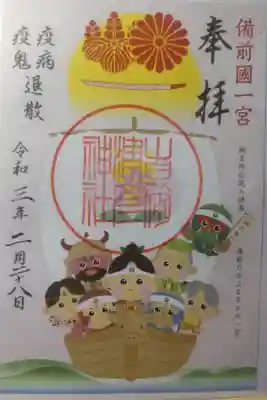 備前國一宮
奉拝
吉備
津彦
神社
疫病
疫鬼
退散
令和三年二月二十八日